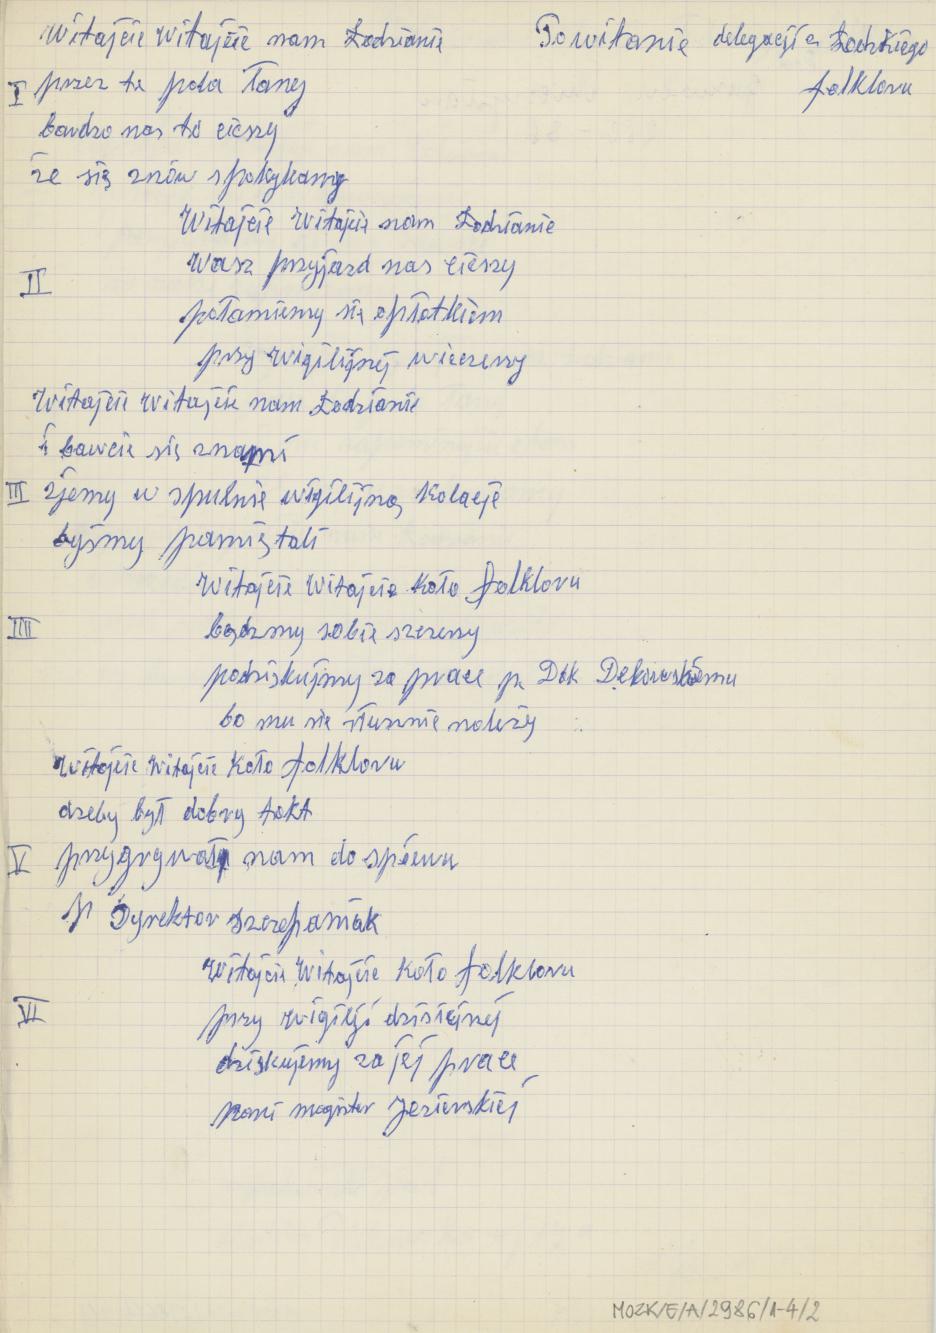 Powitanie delegacji Łodzkiego
folkloru
Witajcie witajcie nam Łodzianie
I przez te pola łany
bardzo nas to cieszy
że się znów spotykamy
Witajcie witajcie nam Łodzianie
II wasz przyjazd nas cieszy
połamiemy się opłatkiem
przy wigilijnej wieczerzy
Witajcie witajcie nam Łodzianie
i bawcie się znami
III zjemy w spulnie wigilijną kolacje
byśmy pamiętali
witajcie witajcie koło folkloru
IIII bądzmy sobie szczerzy
podziskujmy za prace p. Dok Dekowskiemu
bo mu sie słusznie należy
witajcie witajcie koło folkloru
dzeby był dobry takt
V przygrywa nam do spiewu
p Dyrektor Szczepaniak
witajcie witajcie koło folkloru
VI przy wigilji dzisiejnej
dziskujemy za jej prace
pani magister Jezierskiej
MOZK/E/A/2986/1-4/2